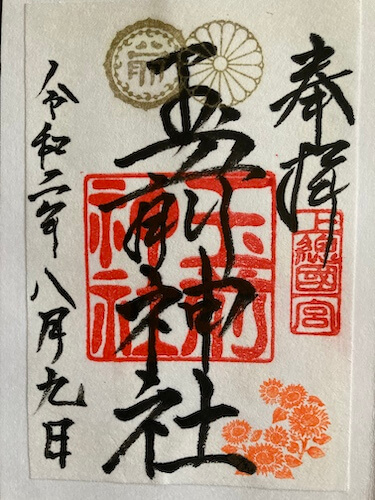 奉拝
上總國一宮
玉前神社
玉前神社
令和二年八月九日